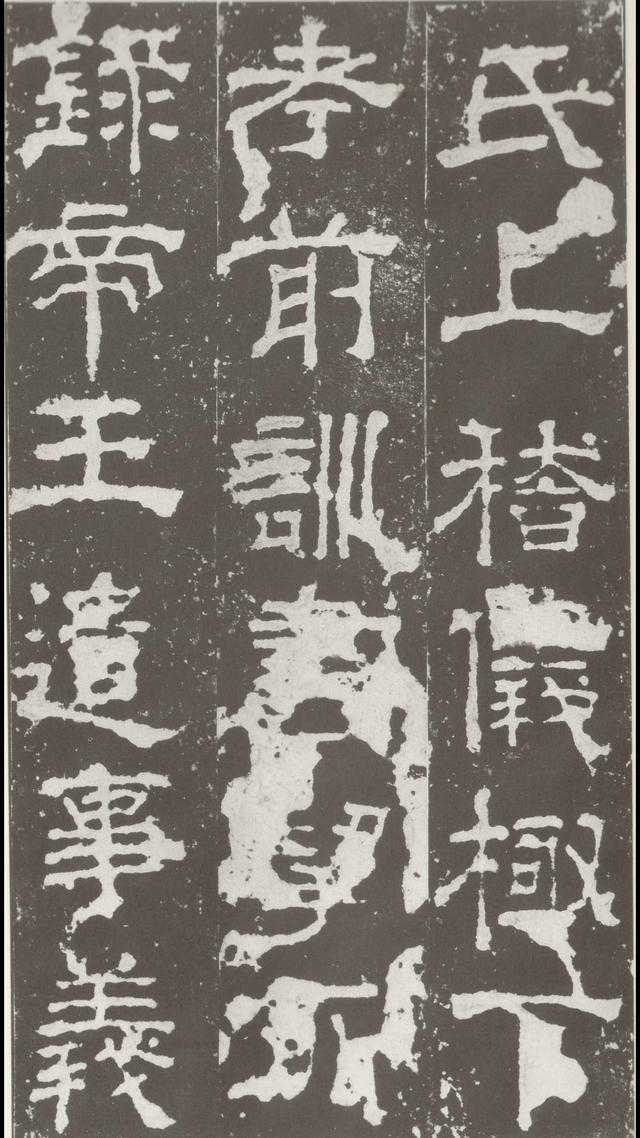 氏上稽儀極下
考前訓
錄帝王遺事義